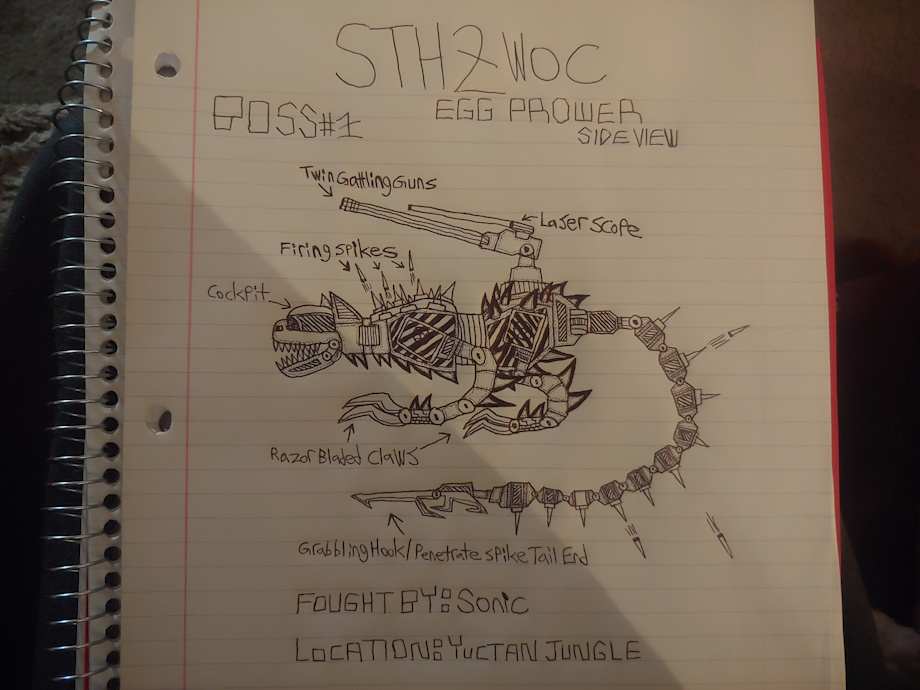 STH2WOC
BOSS#1
EGG PROWER
SIDE VIEW
Twin Gattling Guns
Laser Scope
Firing Spikes
Cockpit
Razor Bladed Claws
Grabbling Hook/Penetrate Spike Tail End
FOUGHT BY: Sonic
LOCATION: YUCTAN JUNGLE